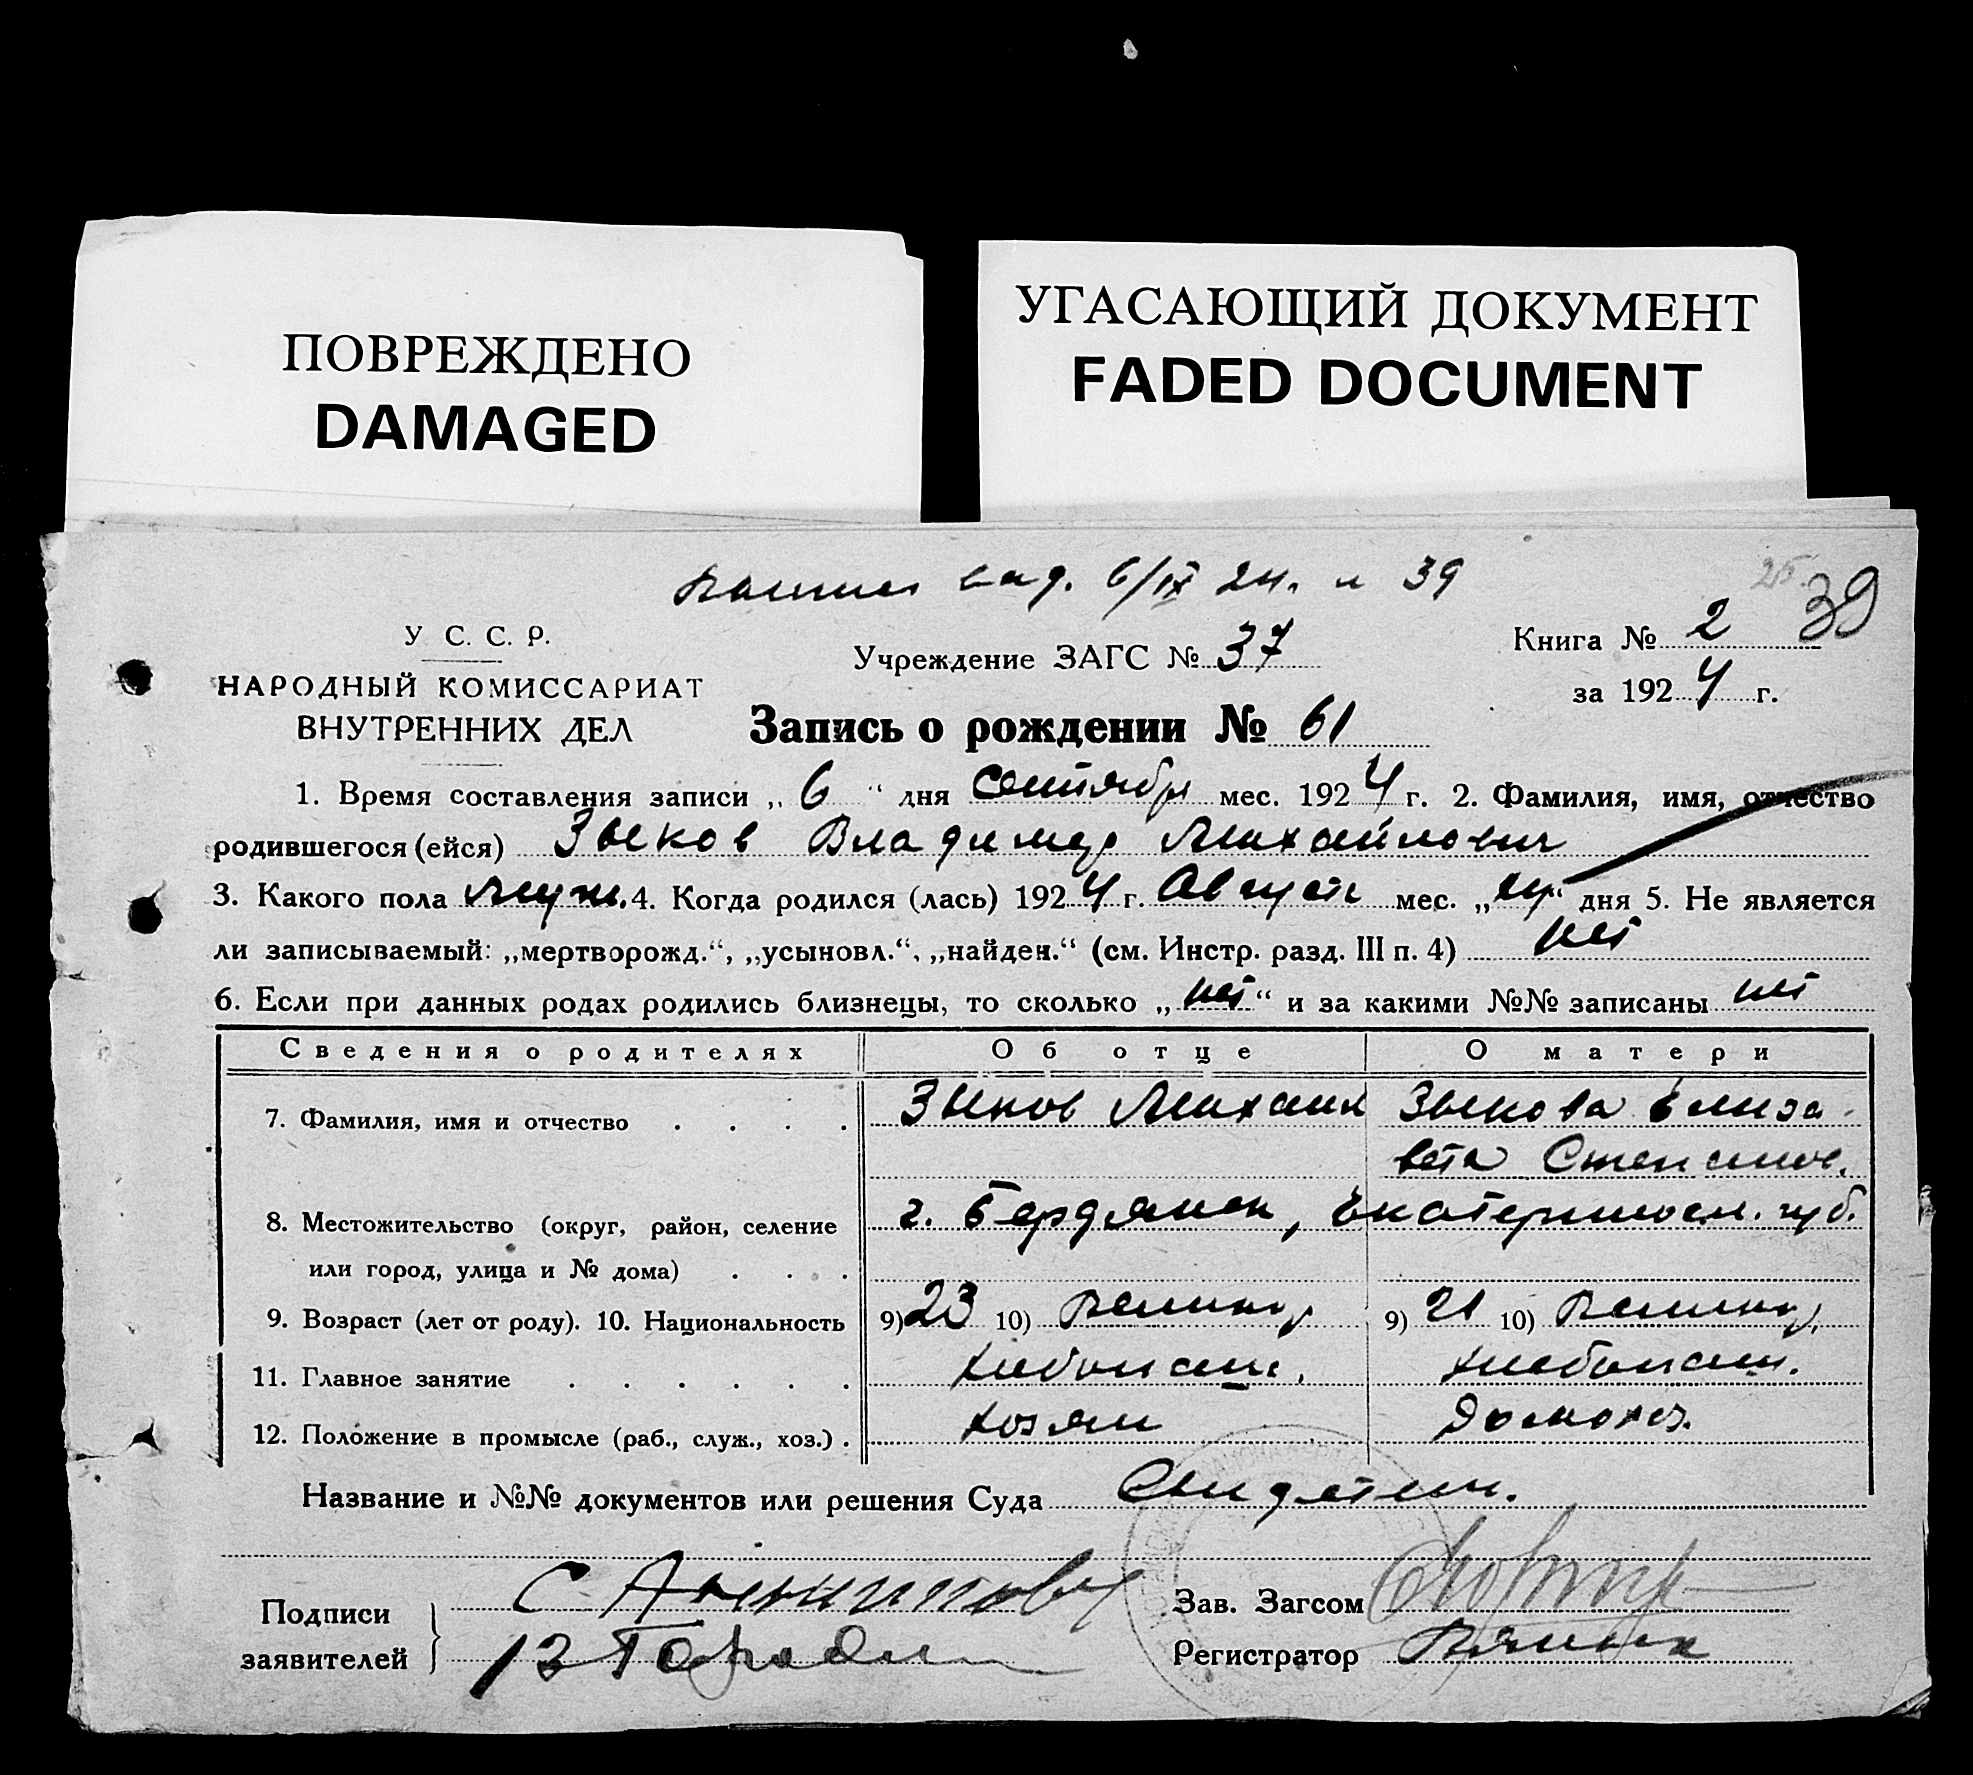 ПОВРЕЖДЕНО
DAMAGED
УГАСАЮЩИЙ ДОКУМЕНТ
FADED DOCUMENT
6/IX 24. 39
25.
39
У С. С. Р.
НАРОДНЫЙ КОМИССАРИАТ
ВНУТРЕННИХ ДЕЛ
Учреждение ЗАГС № 37
Книга № 2
за 1924 г.
Запись о рождении № 61
1. Время составления записи „ 6 “ дня Сентября мес. 1924 г. 2. Фамилия, имя, отчество
родившегося (ейся) Зыков Владимир Михайлович
3. Какого пола Муж. 4. Когда родился (лась) 1924 г. Август мес. „ “ дня 5. Не является
ли записываемый: „мертворожд.“, „усыновл.“, „найден.“ (см. Инстр. разд. III п. 4) нет
6. Если при данных родах родились близнецы, то сколько „нет“ и за какими №№ записаны нет
Сведения о родителях Об отце О матери
7. Фамилия, имя и отчество . . . . Зыков Михаил Зыкова Елиза-
вета Степанов.
8. Местожительство (округ, район, селение г. Бердянск, Екатериносл. губ.
или город, улица и № дома) . . .
9. Возраст (лет от роду). 10. Национальность 9) 23 10) Великор 9) 21 10) Великор.
11. Главное занятие . . . . . . хлебопаш. хлебопаш.
12. Положение в промысле (раб., служ., хоз.) . хозяин Домохоз.
Название и №№ документов или решения Суда Свидетели.
Подписи
заявителей
С.
Зав. Загсом
Регистратор